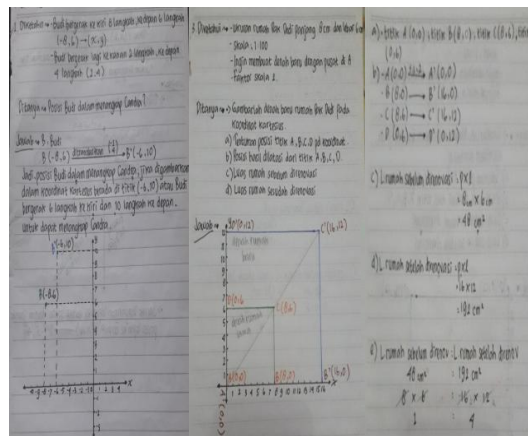 2. Diketahui → - Budi bergerak ke kiri 8 langkah, ke depan 6 langkah
(-8,6) → (x,y)
- Budi bergerak lagi ke kanan 2 langkah, ke depan
4 langkah (2,4)
Ditanya → Posisi Budi dalam menangkap Candra?
Jawab → B : Budi
B (-8,6) B'(-6,10)
Jadi posisi Budi dalam menangkap Candra, jika digambarkan
dalam koordinat kartesius berada di titik (-6,10) atau Budi
bergerak 6 langkah ke kiri dan 10 langkah ke depan
untuk dapat menangkap Candra.
B'(-6,10)
B(-8,6)
3. Diketahui → - Ukuran rumah Pak Dedi panjang 8 cm dan lebar 6 cm
- Skala 1:100
- Ingin membuat denah baru dengan pusat di A
- Faktor skala 2.
Ditanya → Gambarlah denah baru rumah Pak Dedi pada
koordinat kartesius.
a) Tentukan posisi titik A, B, C, D pd koordinat.
b) Posisi hasil dilatasi dari titik A, B, C, D.
c) Luas rumah sebelum direnovasi
d) Luas rumah sesudah direnovasi
Jawab →
D'(0,12)
C'(16,12)
denah rumah
baru
D(0,6)
C(8,6)
denah rumah
A(0,0)
B(8,0)
B'(16,0)
A'(0,0)
a) - titik A (0,0), titik B (8,0), titik C (8,6), titik
(0,6)
b) - A (0,0) → A' (0,0)
- B (8,0) → B' (16,0)
- C (8,6) → C' (16,12)
- D (0,6) → D' (0,12)
c) L rumah sebelum direnovasi = p x l
= 8 cm x 6 cm
= 48 cm²
d) L rumah setelah direnovasi = p x l
= 16 x 12
= 192 cm²
L rumah sebelum direnov : L rumah setelah direnov
48 cm² : 192 cm²
8 x 6 : 16 x 12
1 : 4